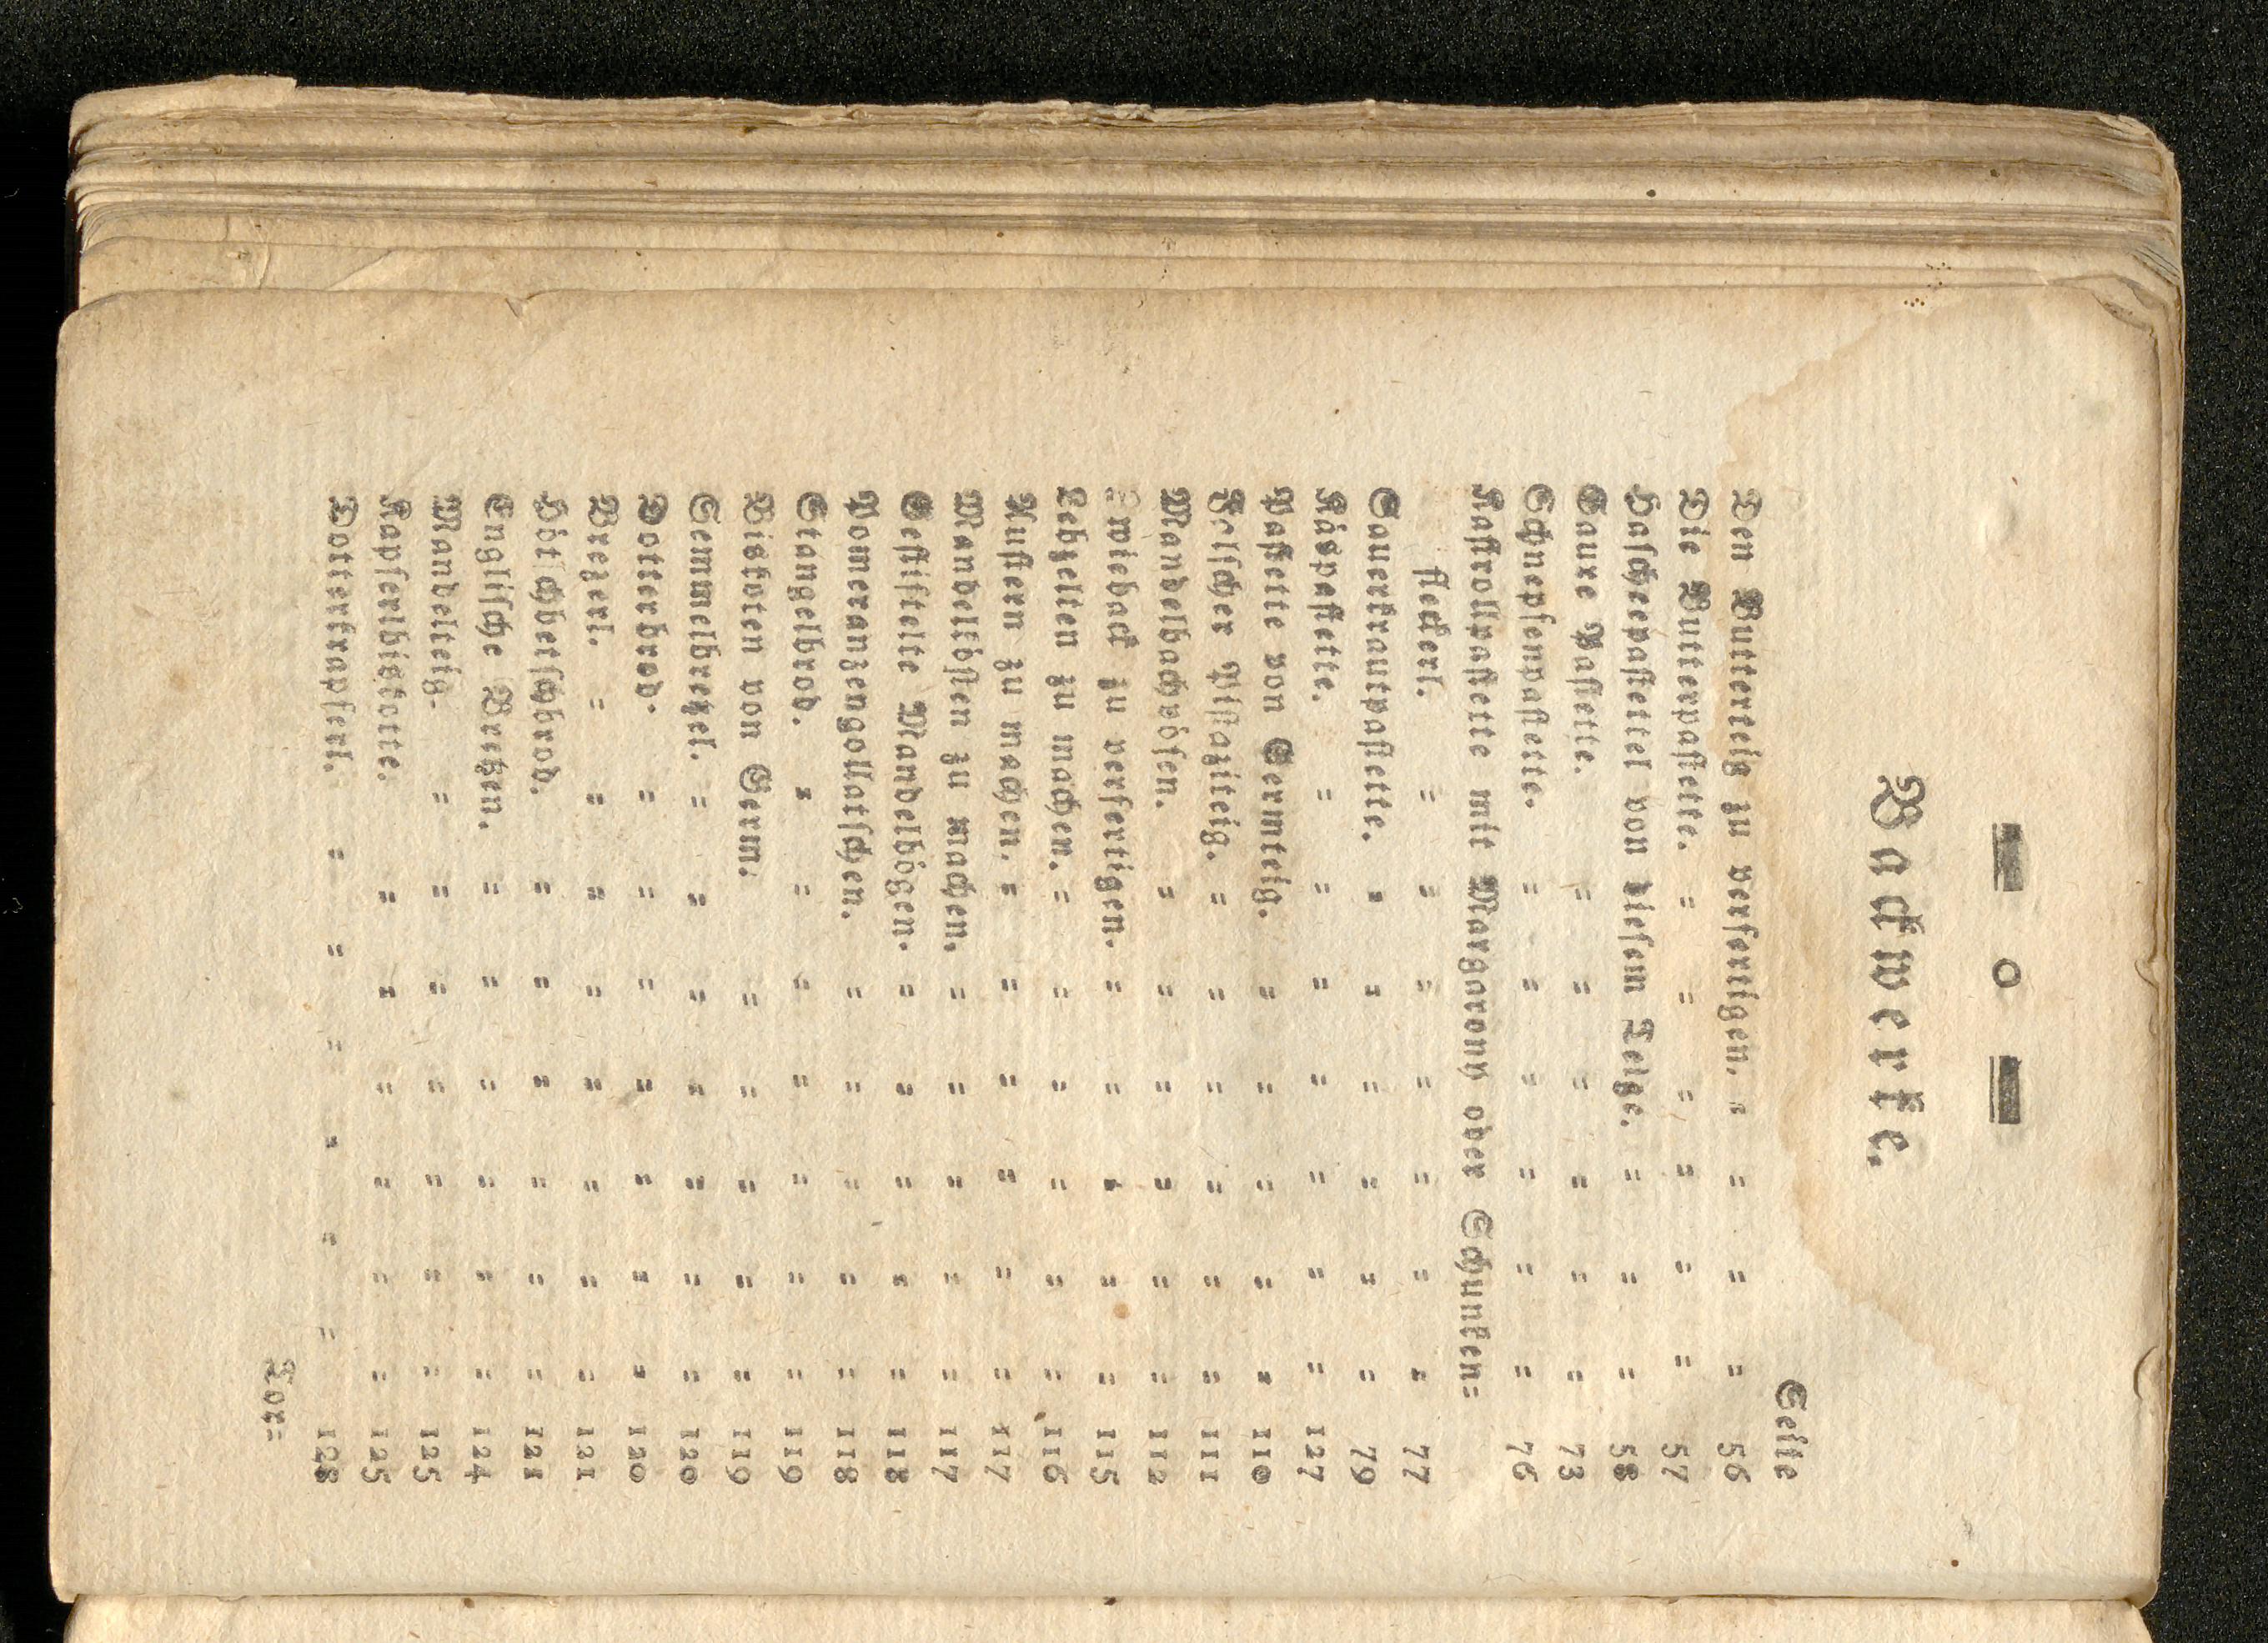 Backwerke.
Seite
Den Butterteig zu verfertigen. = = = = 56
Die Butterpastette. = = = = = = 57
Hascheepastettel von diesem Teige. = = = 58
Saure Pastette. = = = = = = 73
Schnepfenpastette. = = = = = = 76
Kastrollpastette mit Margarony oder Schunken=
fleckerl. = = = = = = = 77
Sauerkrautpastette. = = = = = = 79
Käspastette. = = = = = = = 127
Pastette von Germteig. = = = = = 110
Felscher Pistaziteig. = = = = = = 111
Mandelbachpösen. = = = = = = 112
Zwieback zu verfertigen. = = = = = 115
Lebzelten zu machen. = = = = = = 116
Austern zu machen. = = = = = = 117
Mandelkösten zu machen. = = = = = 117
Gestiftelte Mandelbögen. = = = = = 118
Pomeranzengollatschen. = = = = = 118
Stangelbrod. = = = = = = = 119
Biskoten von Germ. = = = = = 119
Semmelbrezel. = = = = = = = 120
Dotterbrod. = = = = = = = 120
Brezerl. = = = = = = = = 121
Hötschbetschbrod. = = = = = = 121
Englische Bretzen. = = = = = = 124
Mandelteig. = = = = = = = 125
Kapserlbiskotte. = = = = = = 125
Dotterkrapferl. = = = = = = 128
Tor=